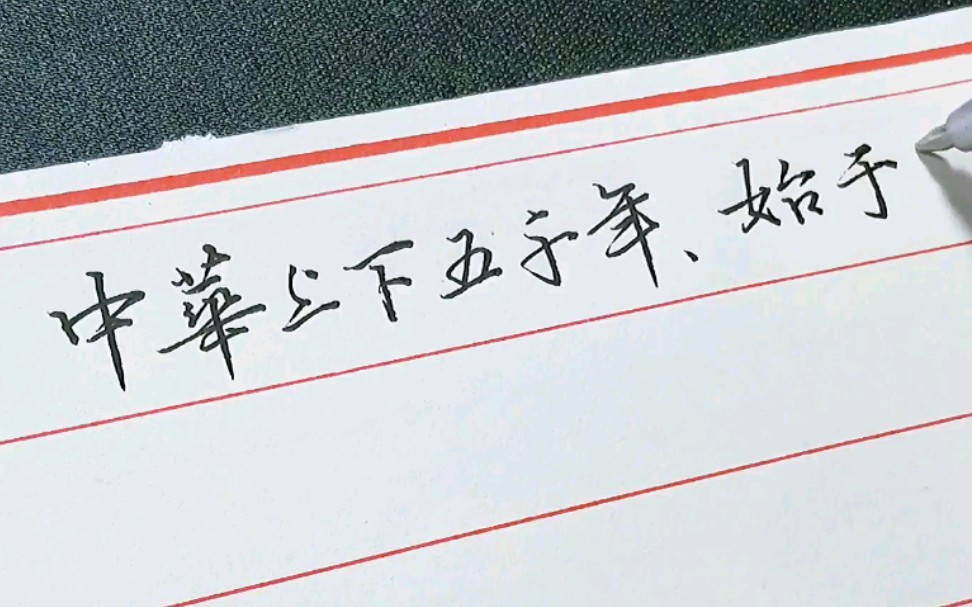 中華上下五千年、始于